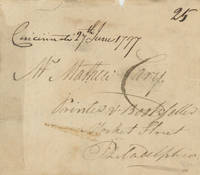 25
Cincinnati 27th June 1797
Mr. Mathew Cary
Printer & Bookseller
Market Street
Philadelphia